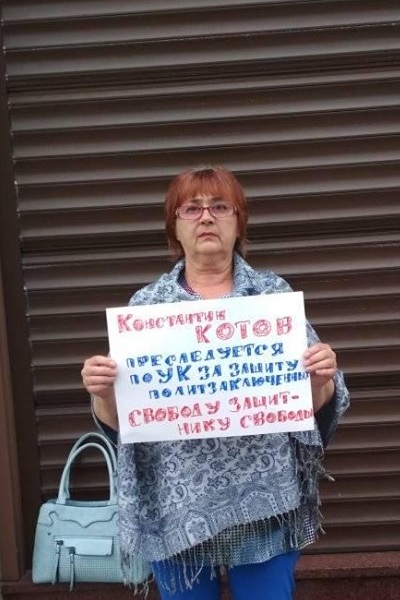 КОНСТАНТИН
КОТОВ
ПРЕСЛЕДУЕТСЯ
ПО УК ЗА ЗАЩИТУ
ПОЛИТЗАКЛЮЧЕННЫХ
СВОБОДУ ЗАЩИТ-
НИКУ СВОБОДЫ